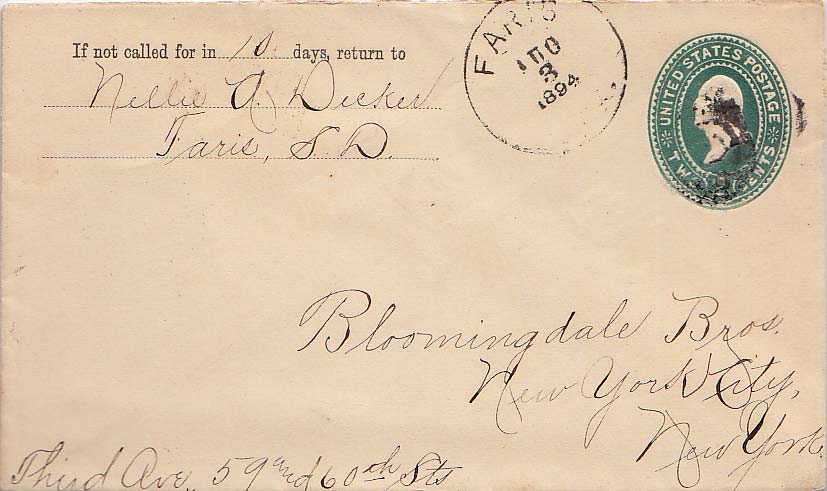 If not called for in 10 days, return to
Nellie A. Decker
Faris, S.D.
FARIS
3
1894
UNITED STATES POSTAGE
TWO CENTS
Bloomingdale Bros.
New York City,
New York.
Third Ave., 59 and 60th Sts